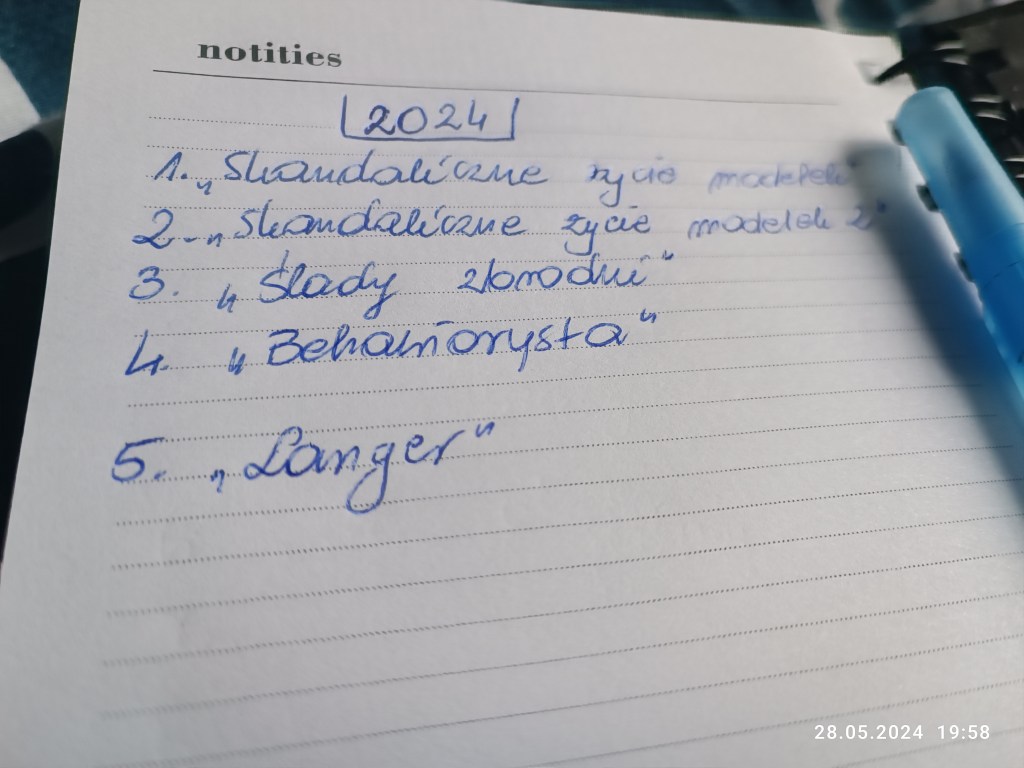 notities
2024
1. „Skandaliczne życie modelek"
2. „Skandaliczne życie modelek 2"
3. „Ślady zbrodni"
4. „Behawiorysta"
5. „Langer"
28.05.2024 19:58